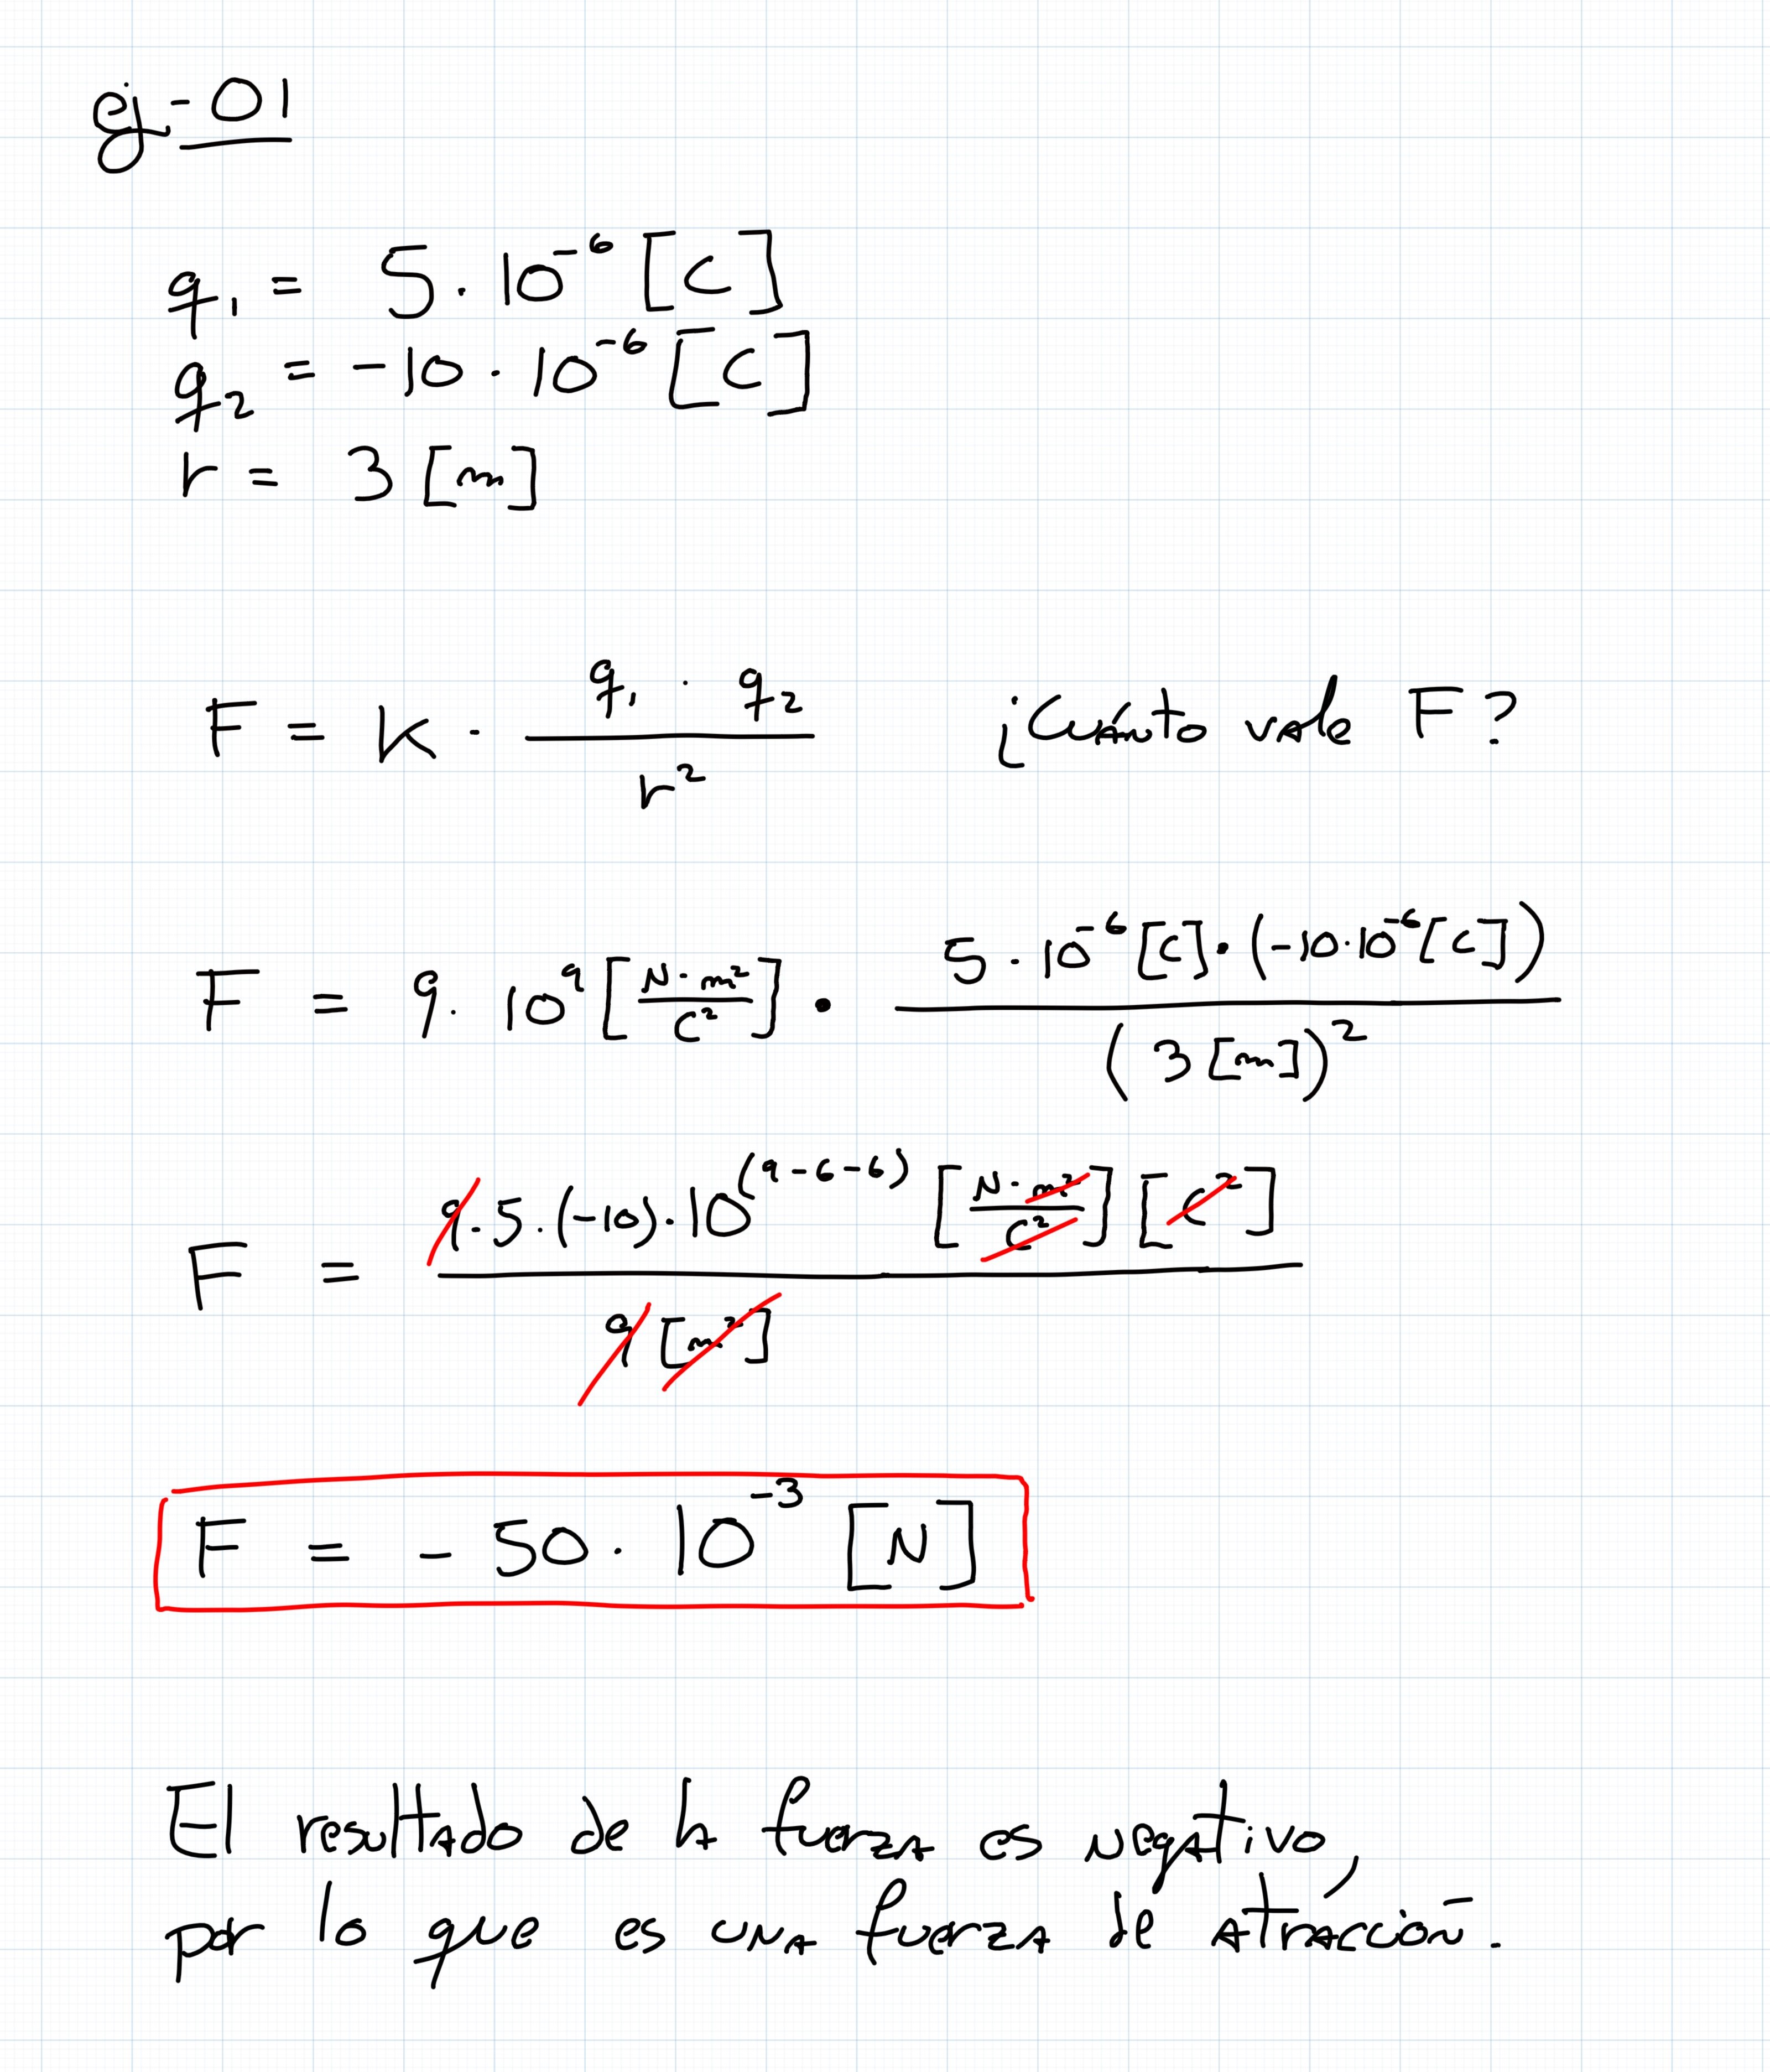 ej-01
q₁ = 5 · 10⁻⁶ [C]
q₂ = -10 · 10⁻⁶ [C]
r = 3 [m]
F = K · (q₁ · q₂) / r² ¿Cuánto vale F?
F = 9 · 10⁹ [N·m²/C²] · (5 · 10⁻⁶ [C] · (-10·10⁻⁶ [C])) / (3 [m])²
F = (9 · 5 · (-10) · 10⁽⁹⁻⁶⁻⁶⁾ [N·m²/C²] [C²]) / (9 [m²])
F = - 50 · 10⁻³ [N]
El resultado de la fuerza es negativo,
por lo que es una fuerza de atracción.